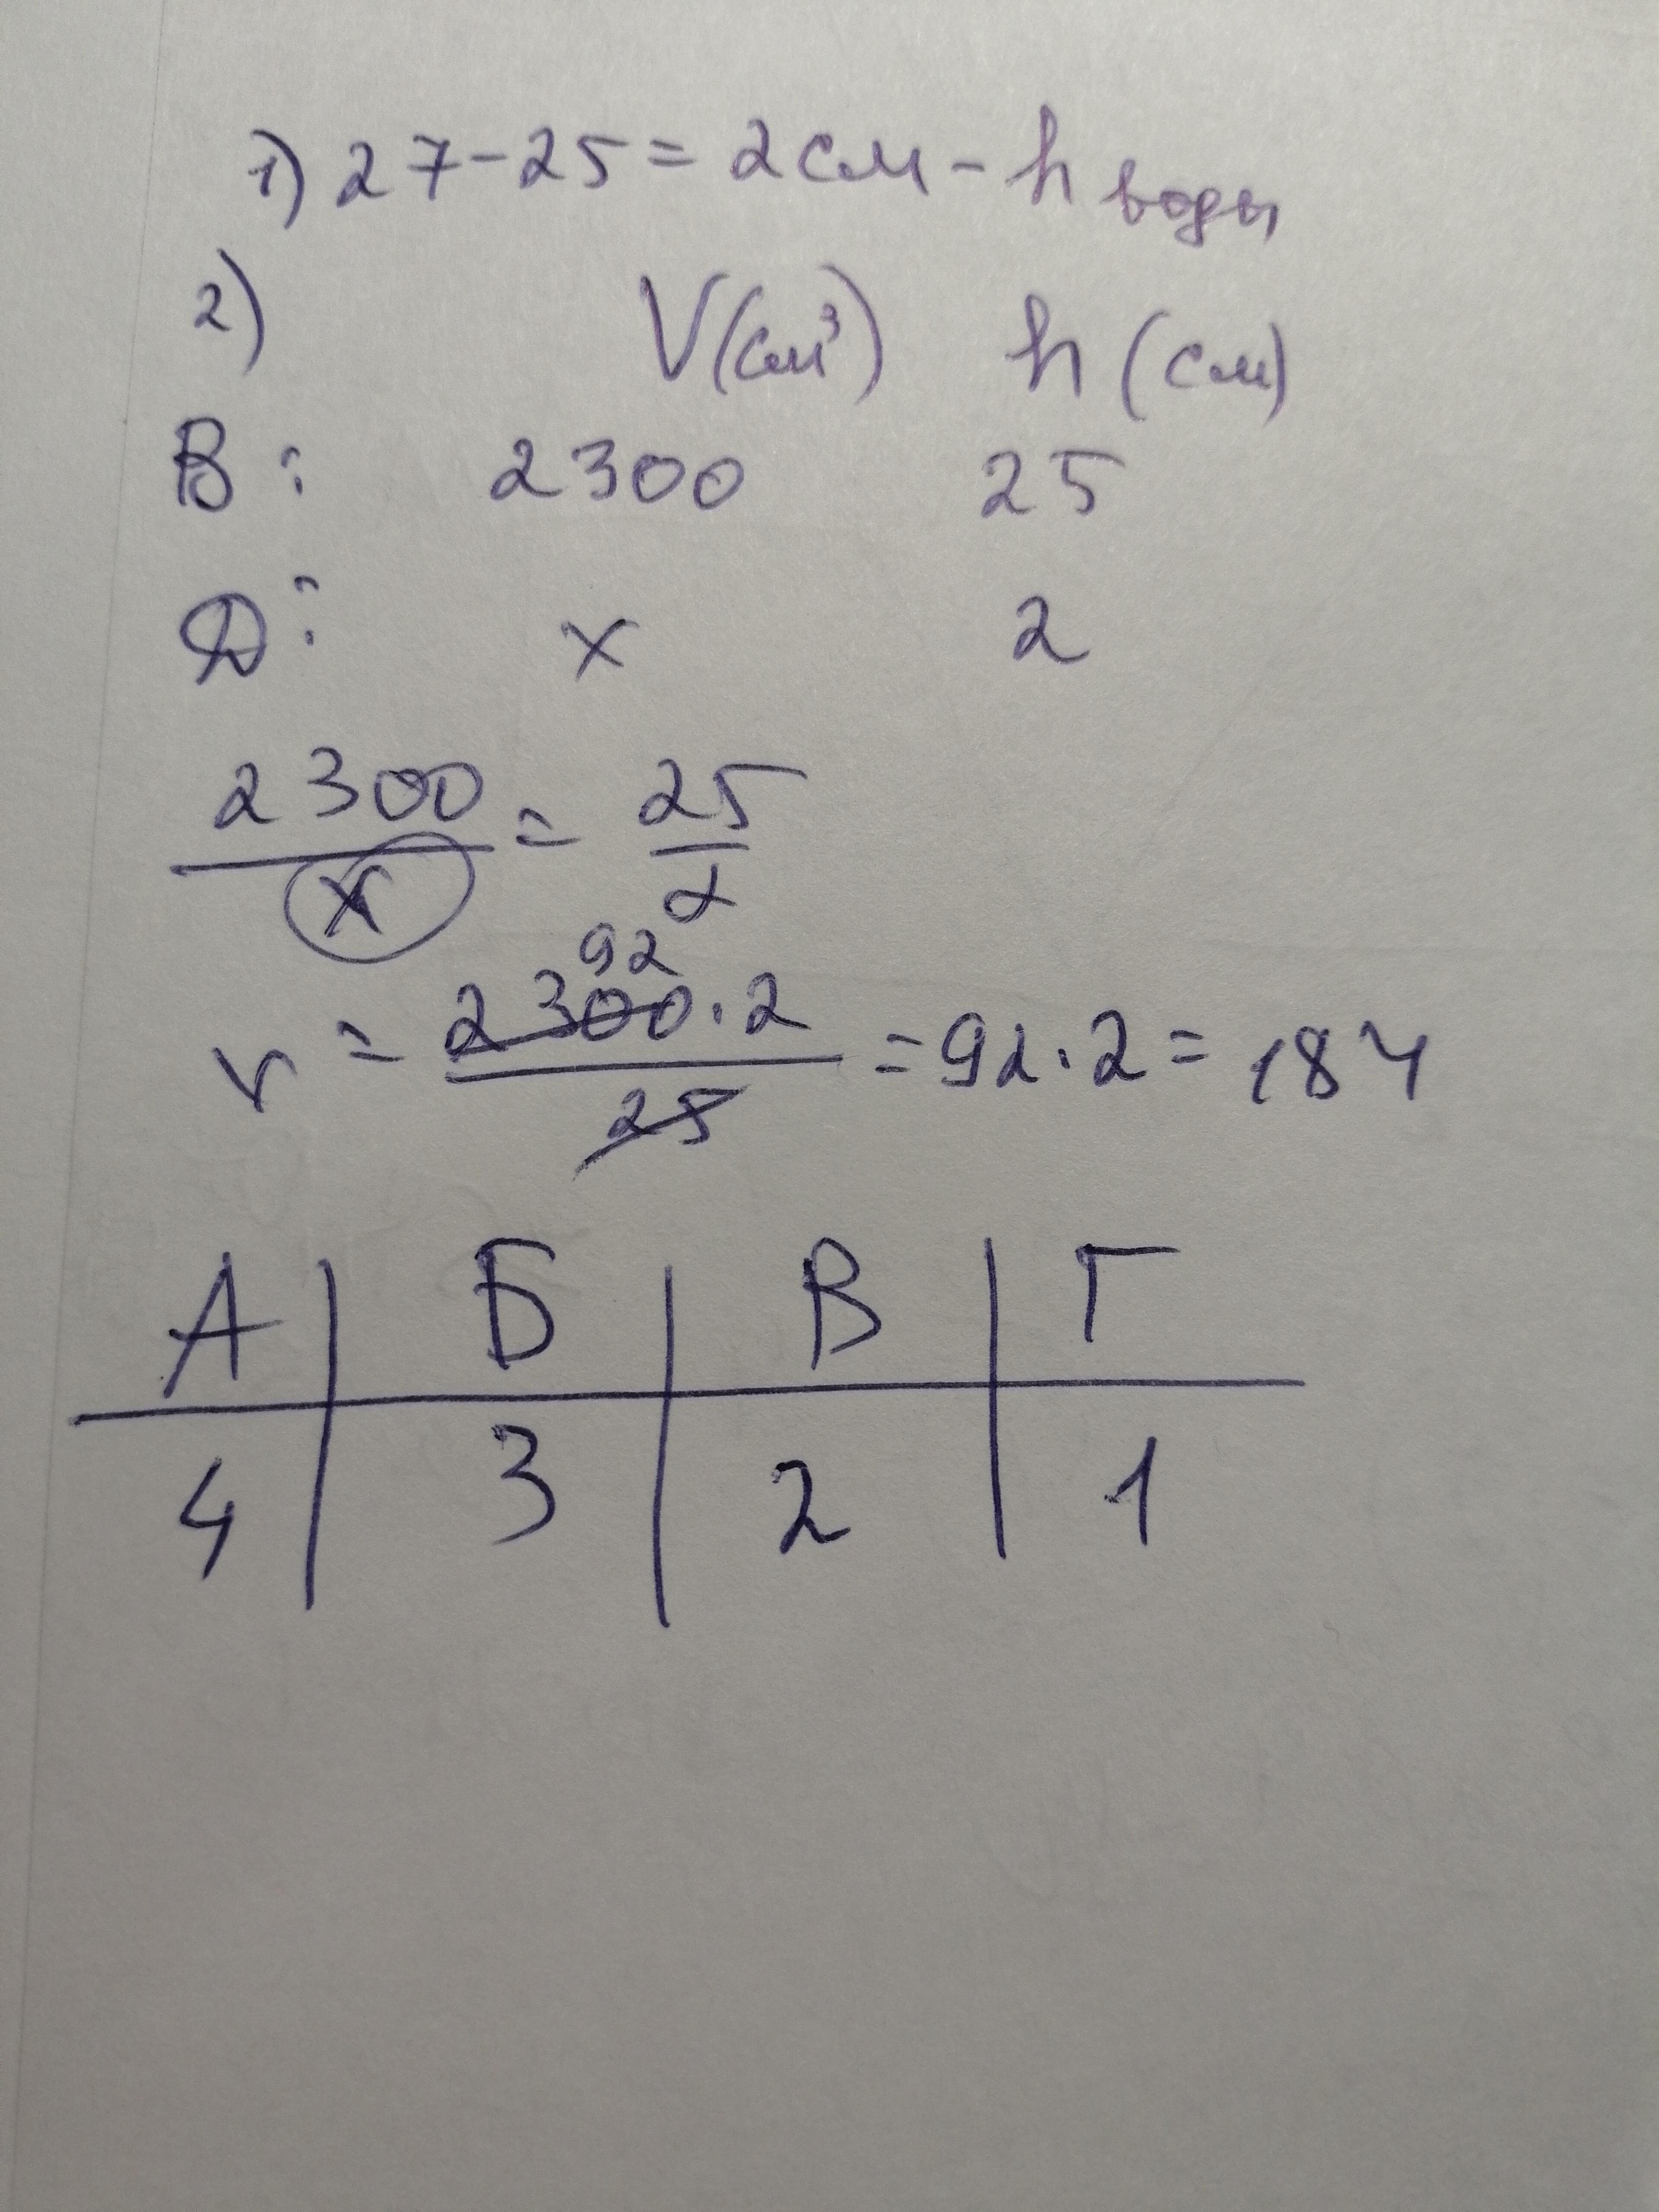 1) 27-25=2см - h воды
2) V(см³) h (см)
В: 2300 25
Д: x 2
2300/x = 25/2
92
x = 2300·2/25 = 92·2 = 184
А | Б | В | Г
4 | 3 | 2 | 1